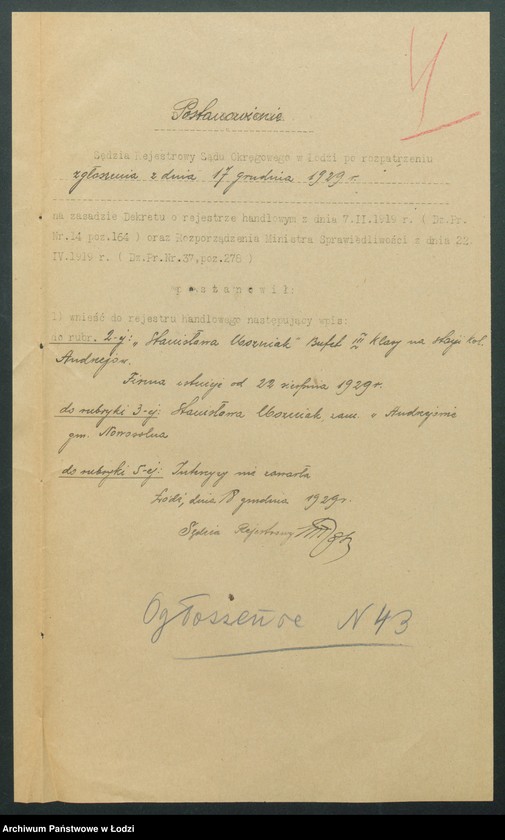 4
Postanowienie
Sędzia Rejestrowy Sądu Okręgowego w Łodzi po rozpatrzeniu
zgłoszenia z dnia 17 grudnia 1929 r.
na zasadzie Dekretu o rejestrze handlowym z dnia 7.II.1919 r. ( Dz.Pr.
Nr.14 poz.164 ) oraz Rozporządzenia Ministra Sprawiedliwości z dnia 22.
IV.1919 r. ( Dz.Pr.Nr.37,poz.276 )
p o s t a n o w i ł :
1) wnieść do rejestru handlowego następujący wpis:
do rubr. 2-ej: „Stanisława Woźniak" Bufet III klasy na stacji kol.
Andrzejów.
Firma istnieje od 22 sierpnia 1929 r.
do rubryki 3-ej: Stanisława Woźniak, zam. w Andrzejowie
gm. Nowosolna
do rubryki 5-ej: Intercyzy nie zawarła
Łódź, dnia 18 grudnia 1929 r.
Sędzia Rejestrowy
Ogłoszenie N 43
Archiwum Państwowe w Łodzi